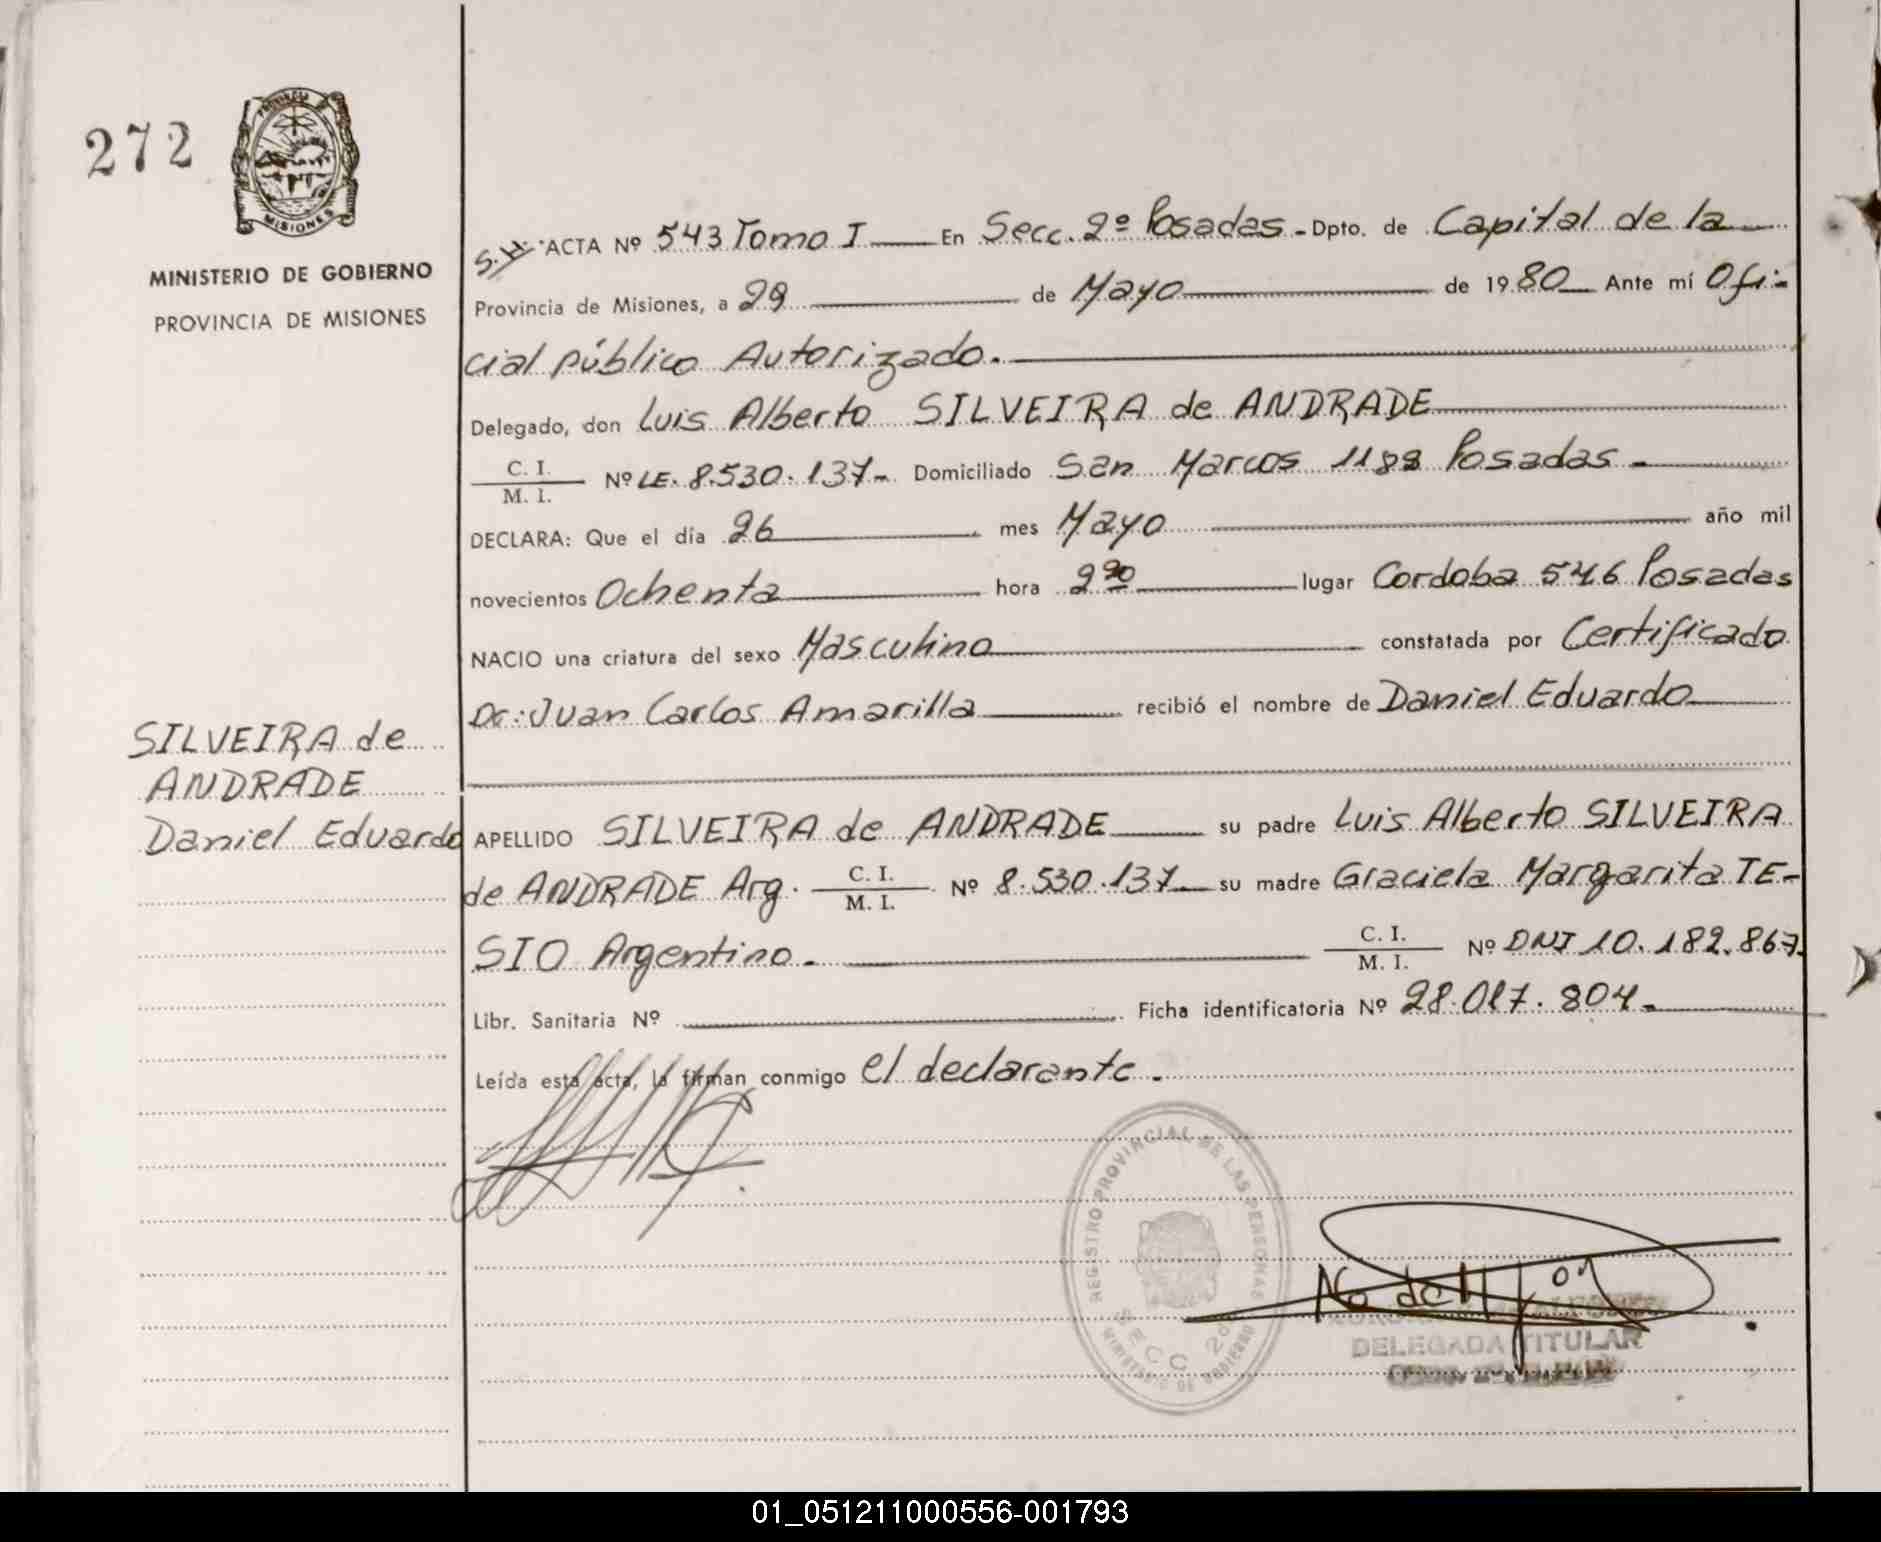 272
PROVINCIA D
MISIONES
MINISTERIO DE GOBIERNO
PROVINCIA DE MISIONES
S.H. ACTA Nº 543 Tomo I En Secc. 2º Posadas - Dpto. de Capital de la
Provincia de Misiones, a 29 de Mayo de 1980 Ante mí Ofi-
cial público Autorizado.
Delegado, don Luis Alberto SILVEIRA de ANDRADE
C. I.
M. I.
Nº LE. 8.530.137- Domiciliado San Marcos 1188 Posadas -
DECLARA: Que el día 26 mes Mayo año mil
novecientos Ochenta hora 2 20 lugar Cordoba 546 Posadas
NACIO una criatura del sexo Masculino constatada por Certificado
Dr: Juan Carlos Amarilla recibió el nombre de Daniel Eduardo
SILVEIRA de
ANDRADE
Daniel Eduardo
APELLIDO SILVEIRA de ANDRADE su padre Luis Alberto SILVEIRA
de ANDRADE Arg. C. I. M. I. Nº 8.530.137 su madre Graciela Margarita TE-
SIO Argentino. C. I. M. I. Nº DNI 10.182.867.
Libr. Sanitaria Nº Ficha identificatoria Nº 28.017.804.-
Leída esta acta, la firman conmigo el declarante.
REGISTRO PROVINCIAL DE LAS PERSONAS
SECC. 2ª
MINISTERIO DE GOBIERNO
DELEGADA TITULAR
01_051211000556-001793